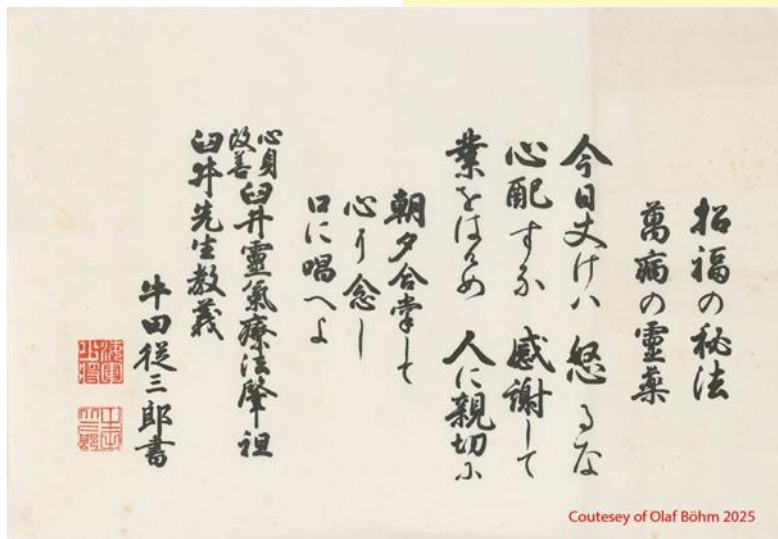 招福の秘法
萬病の靈薬
今日丈けハ 怒るな
心配すな 感謝して
業をはけめ 人に親切に
朝夕合掌して
心に念し
口に唱へよ
心身
改善
臼井靈氣療法肇祖
臼井先生教義
牛田従三郎書
海軍
少将
Coutesey of Olaf Böhm 2025